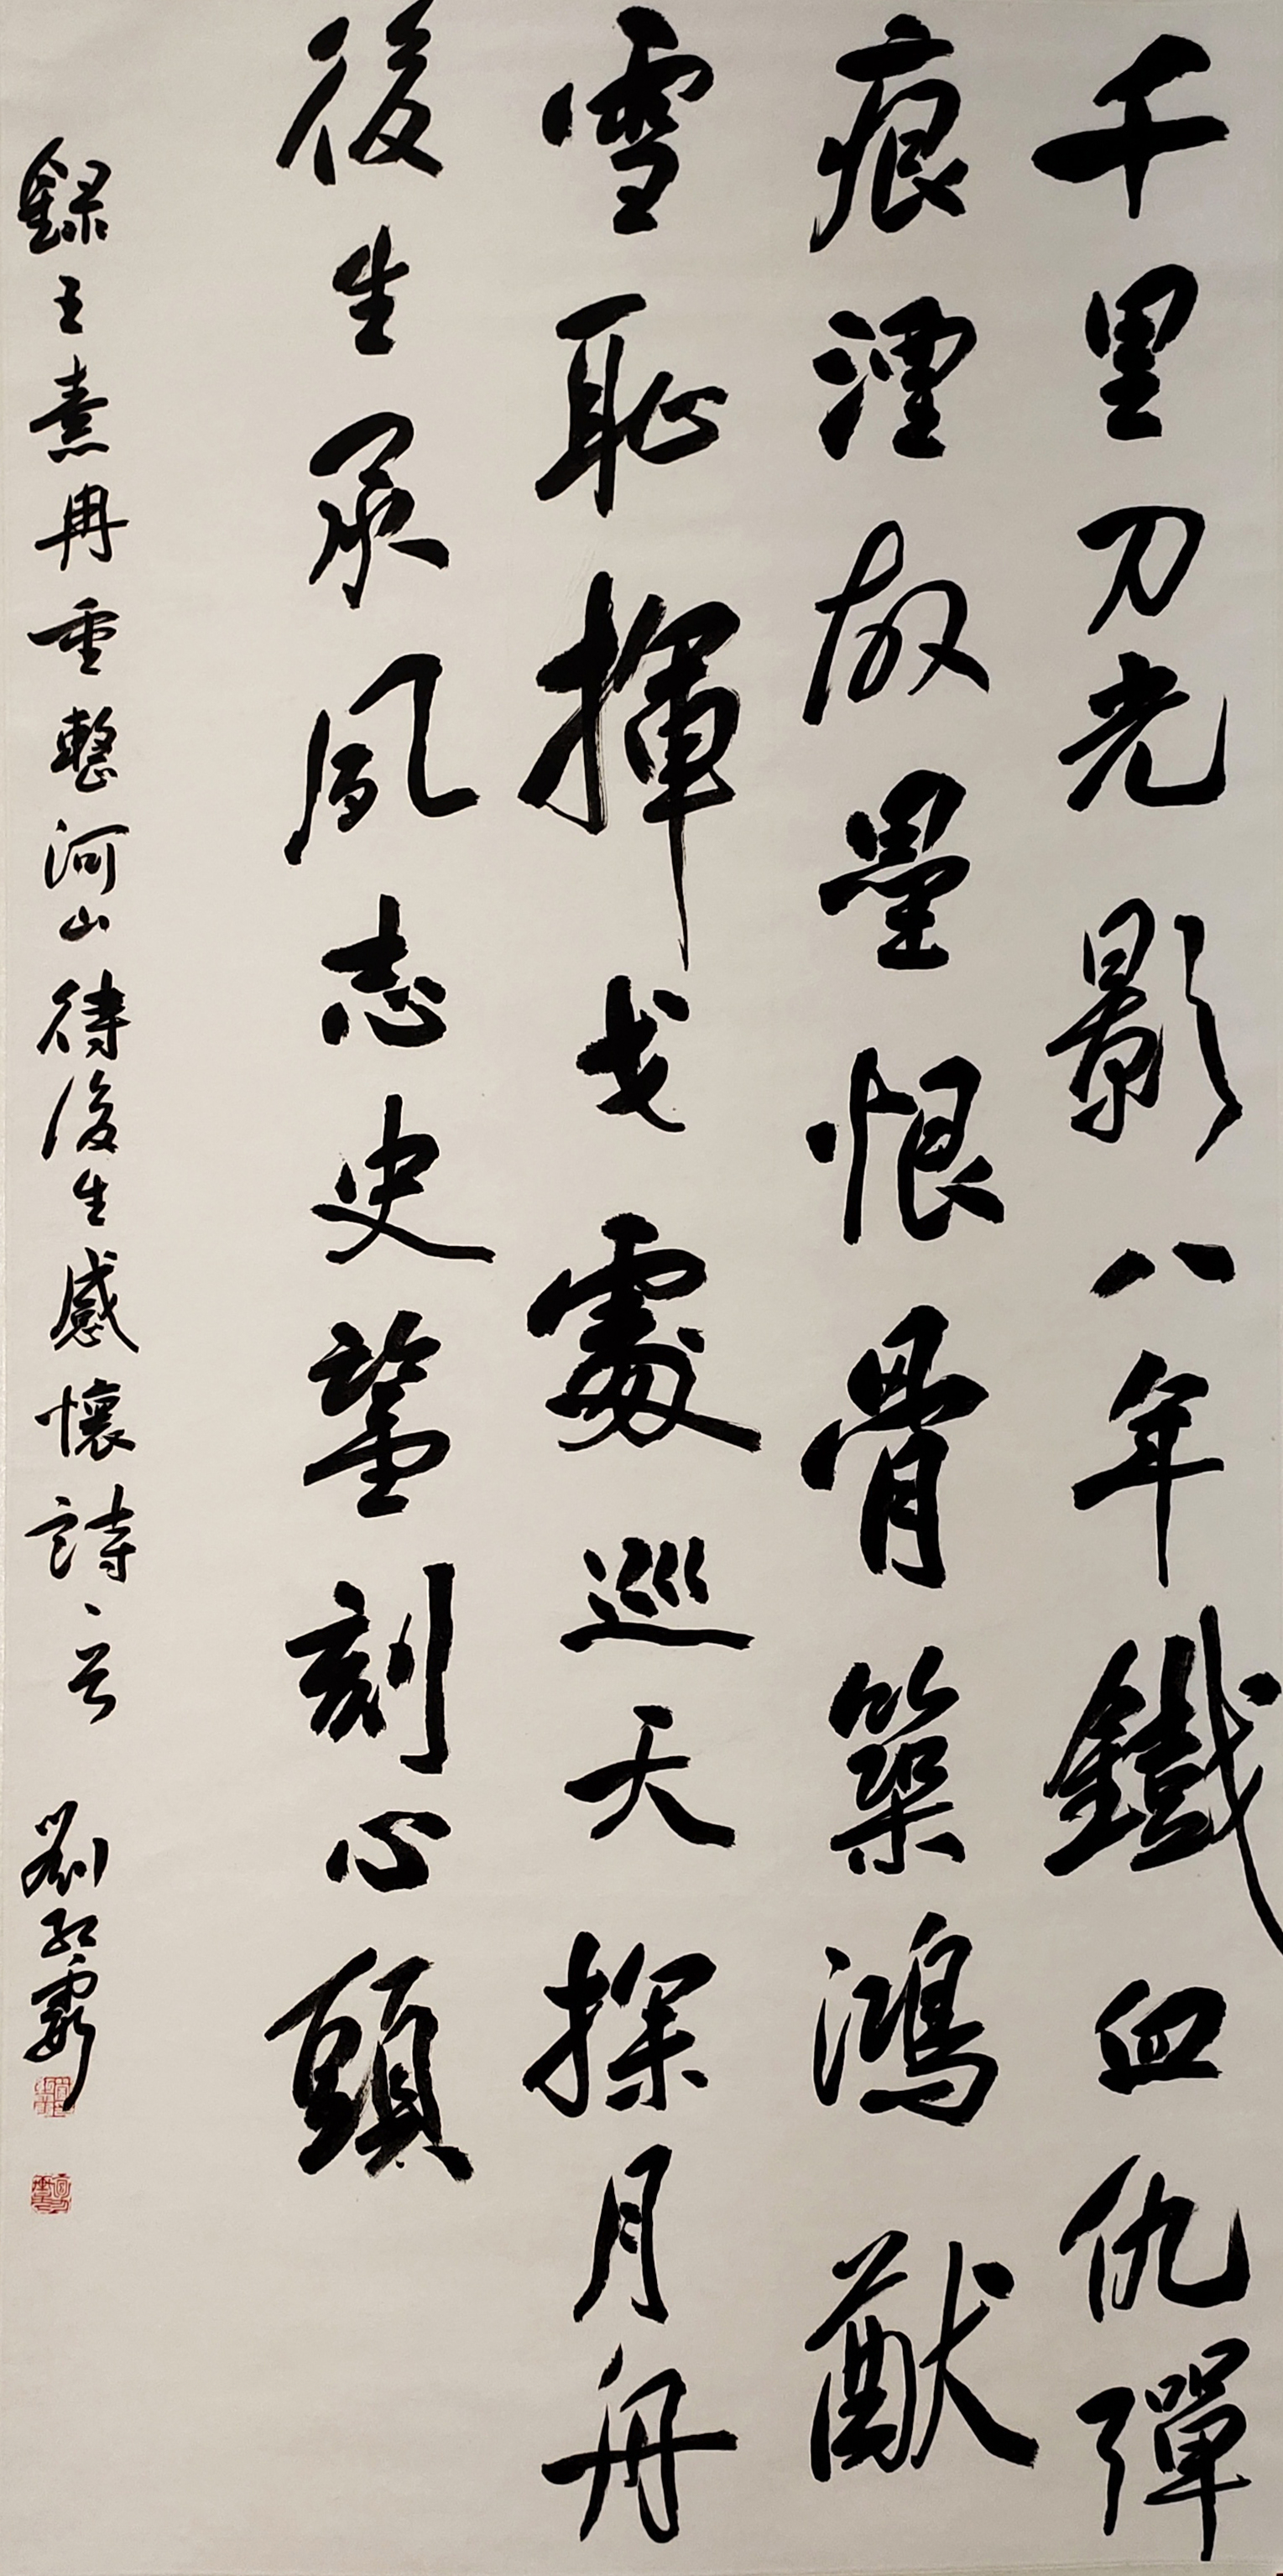 千里刀光影八年鐵血仇彈
痕湮故壘恨骨築鴻猷
雪恥揮戈處巡天探月舟
後生承風志史鑒刻心頭
錄王熹冉重整河山待後生感懷詩一首 劉紅霞